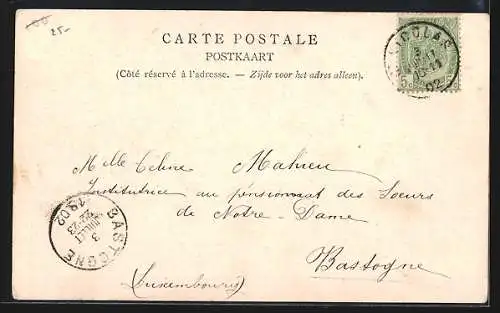 25.-
CARTE POSTALE
POSTKAART
(Côté réservé à l'adresse. — Zijde voor het adres alleen).
Mlle Celine Mahieu
Institutrice au pensionnat des Soeurs
de Notre-Dame
Bastogne
(Luxembourg)
BASTOGNE
3
JUILLET
1902